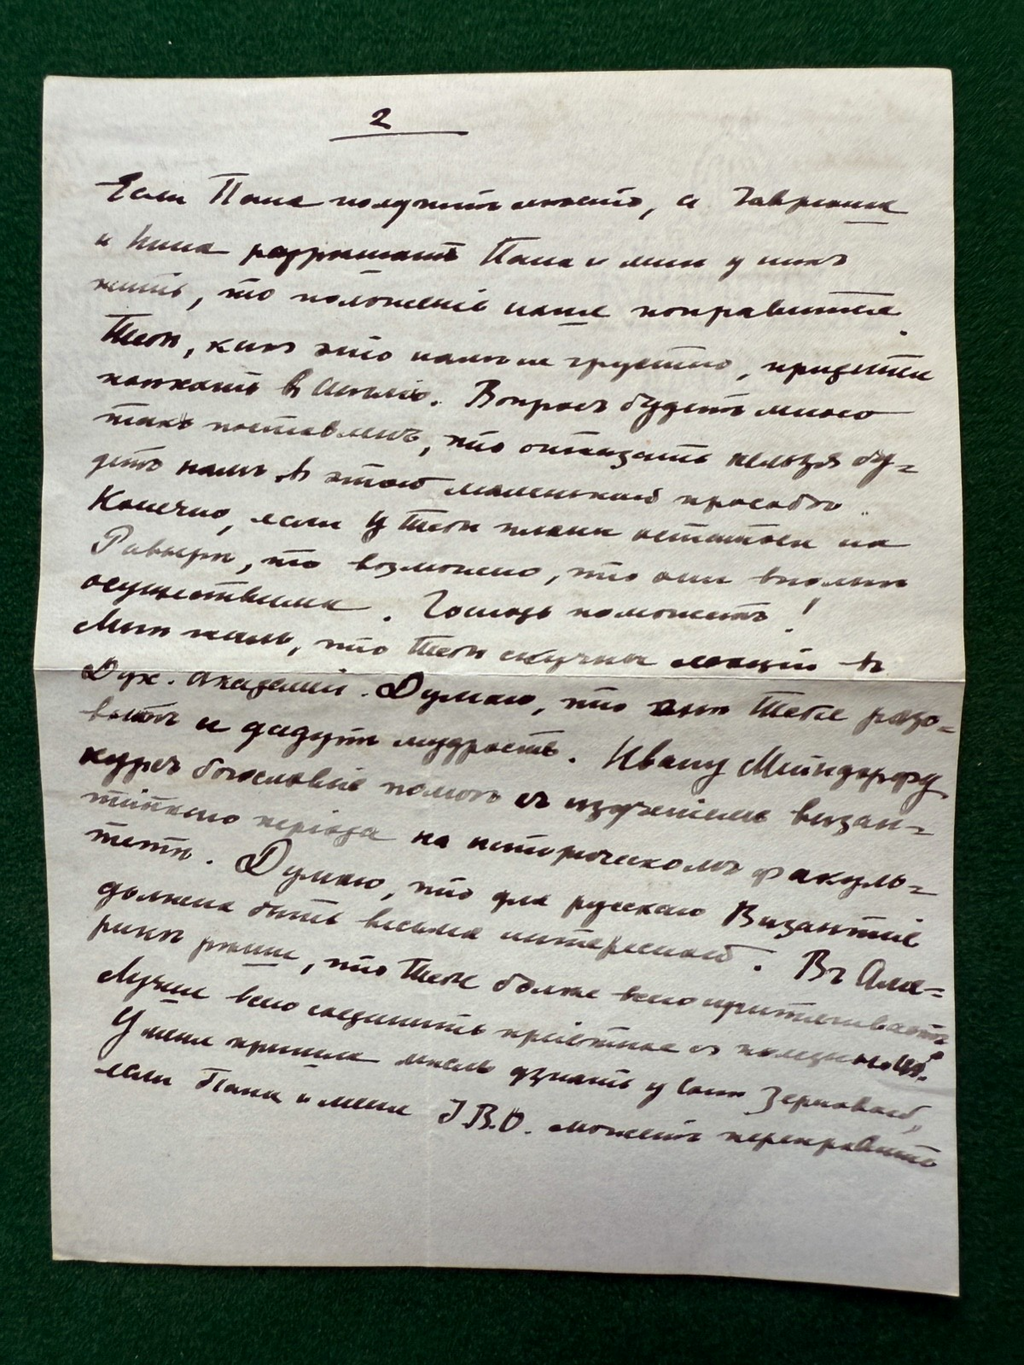 2
Если Папа получитъ мѣсто, а Гаврюша
и Нина разрѣшатъ Папѣ и мнѣ у нихъ
жить, то положеніе наше поправится.
Тебѣ, какъ это намъ не грустно, придется
поѣхать в Англію. Вопросъ будетъ мною
такъ поставленъ, что отказать нельзя бу=
детъ намъ в этой маленькой просьбѣ.
Конечно, если у Тебя планы остаться на
Ривьерѣ, то возможно, что они вполнѣ
осуществимы. Господь поможетъ!
Мнѣ жаль, что Тебѣ скучны лекціи въ
Дух. Академіи. Думаю, что онѣ Тебя разо=
вьютъ и дадутъ мудрость. Ивану Мейндорфу
курсъ богословія помогъ съ изученіемъ визан=
тійскаго періода на историческомъ факуль=
тетѣ. Думаю, что для русскаго Византія
должна быть весьма интересной. В
рикѣ, что Тебя болѣе всего притягиваетъ
Лучше всего соединить пріятное съ полезнымъ.
У меня пришла мысль узнать у Сони Зерновой,
если Папѣ и мнѣ I.R.O. можетъ переправить